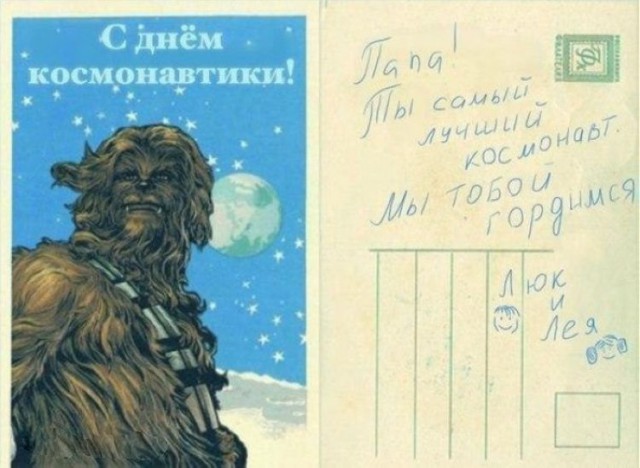 С днём
космонавтики!
Папа!
Ты самый
лучший
космонавт.
Мы тобой
гордимся
Люк
и
Лея